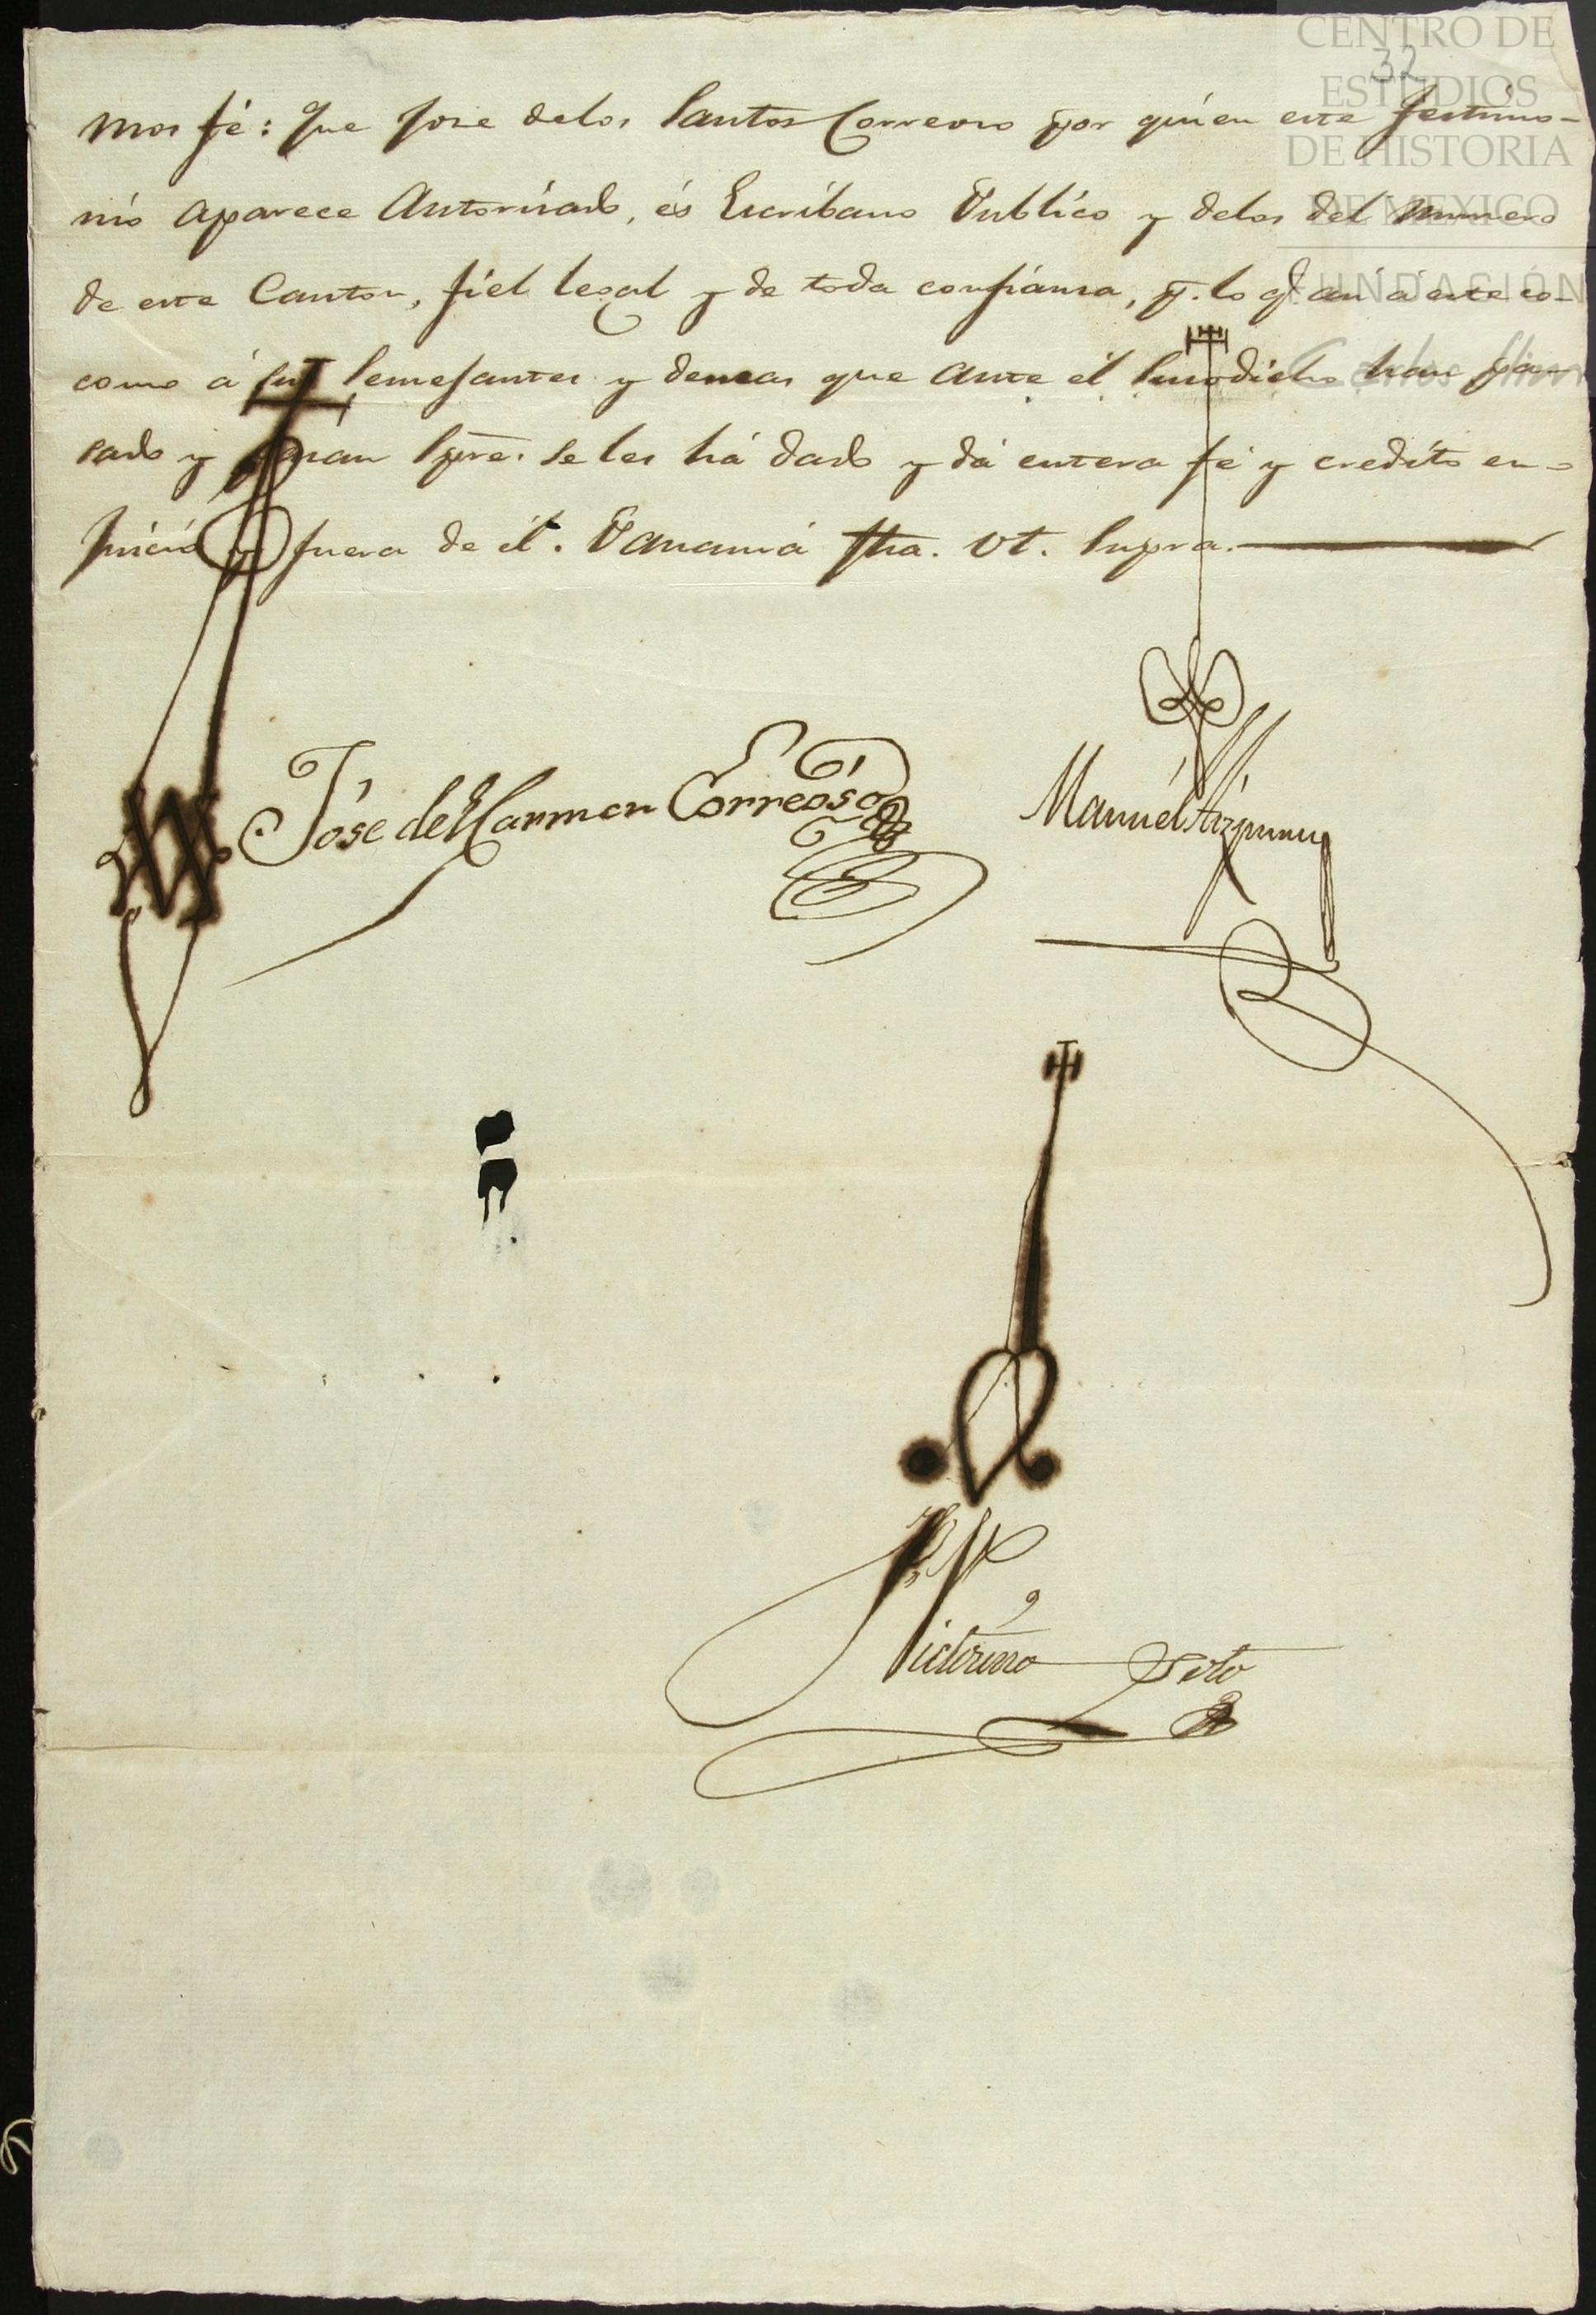 CENTRO DE
ESTUDIOS
DE HISTORIA
DE MEXICO
FUNDACIÓN
Carlos Slim
32
mos fé: Que Jose delos Santos Correoso por quien este testimo-
nio aparece Autorisado, és Escribano Publico y delos del numero
de este Canton, fiel legal y de toda confiansa, p. lo q. asi á este co-
como á sus Semejantes y demas que ante él Susodicho han pa-
sado y pasan Spre. se les há dado y dá entera fé y credito en-
Juicio y fuera de él. Panamá fha. Vt. Supra.
José del Carmen Correoso
Manuél Aizpuru
Victorino